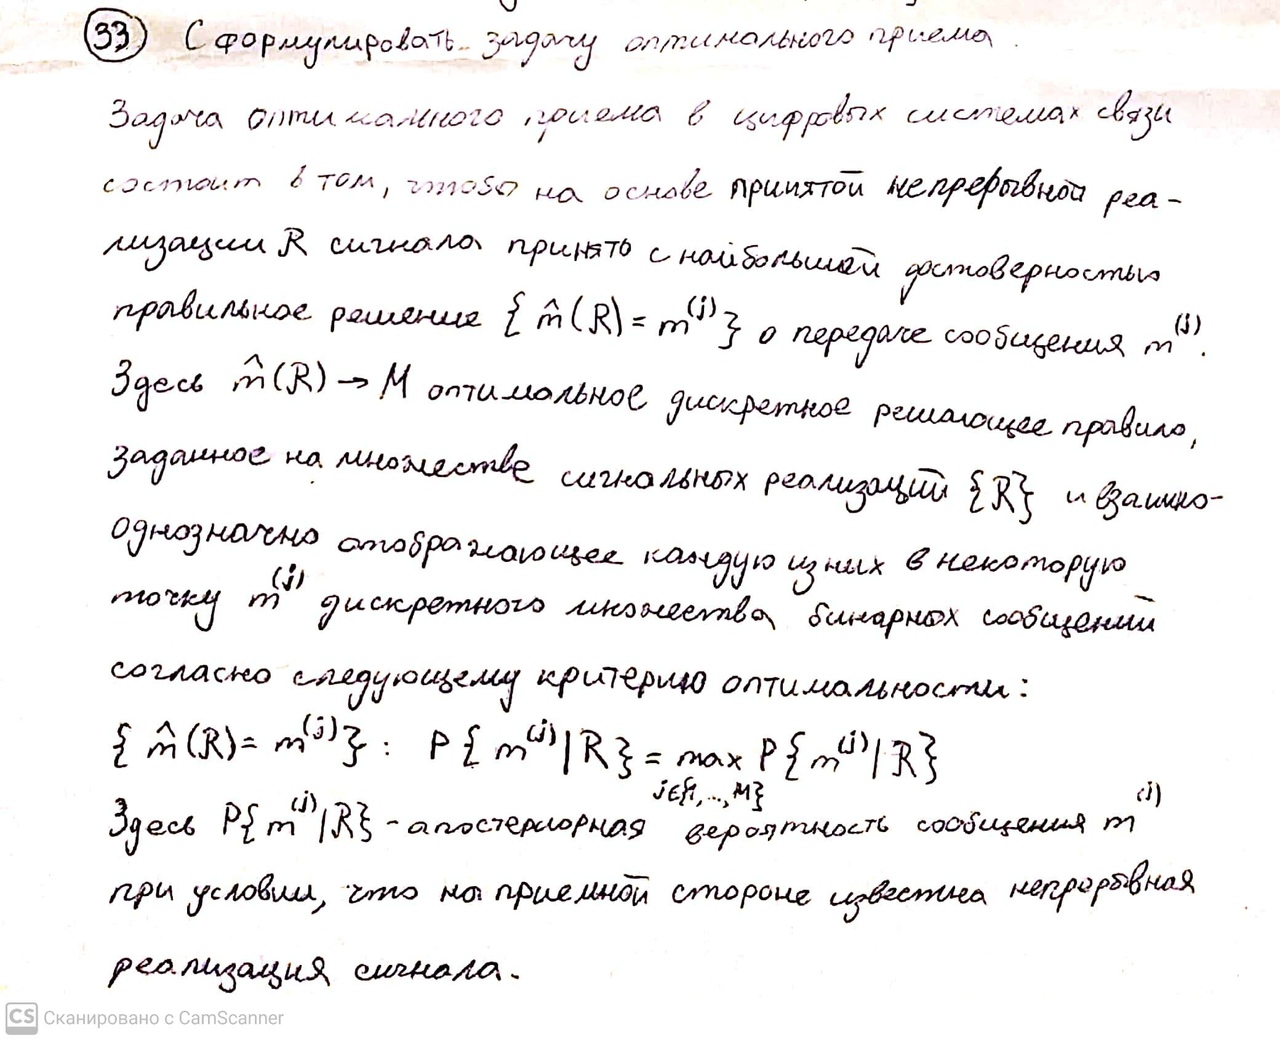 33) Сформулировать задачу оптимального приема.
Задача оптимального приема в цифровых системах связи
состоит в том, чтобы на основе принятой непрерывной реа-
лизации R сигнала принято с наибольшей достоверностью
правильное решение { m̂(R) = m^(j) } о передаче сообщения m^(j).
Здесь m̂(R) → M оптимальное дискретное решающее правило,
заданное на множестве сигнальных реализаций {R} и взаимно-
однозначно отображающее каждую из них в некоторую
точку m^(j) дискретного множества бинарных сообщений
согласно следующему критерию оптимальности:
{ m̂(R) = m^(j) } : P{ m^(j) | R } = max P{ m^(j) | R }
j∈{1,...,M}
Здесь P{ m^(j) | R } - апостериорная вероятность сообщения m^(j)
при условии, что на приемной стороне известна непрерывная
реализация сигнала.
CS Сканировано с CamScanner